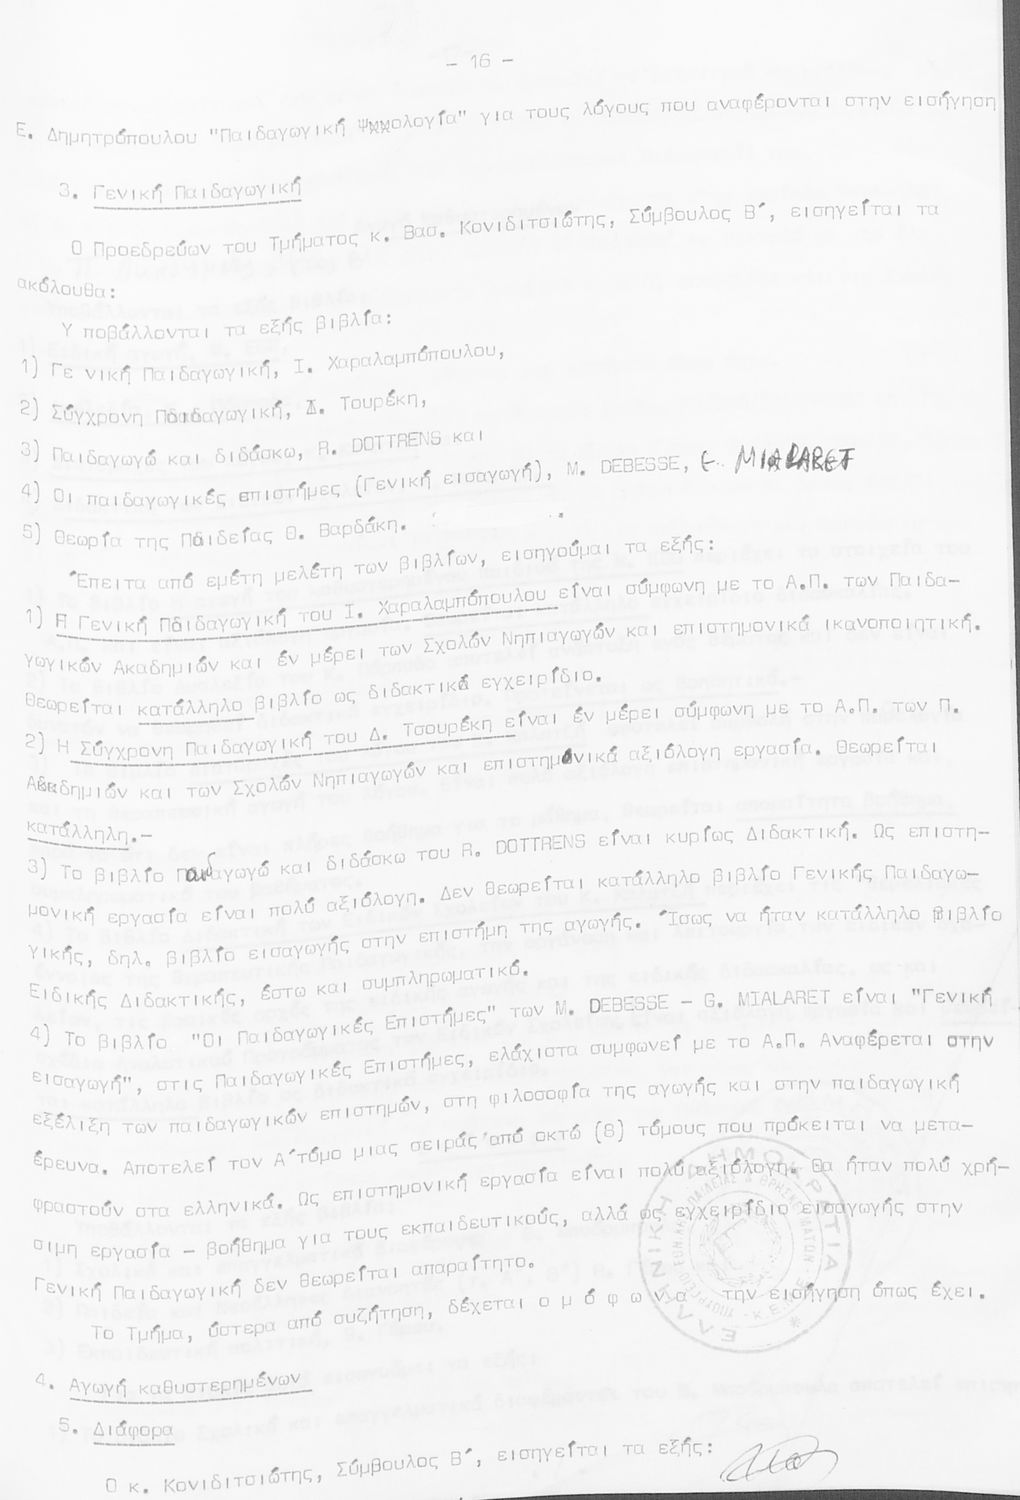 - 16 -
Ε. Δημητρόπουλου "Παιδαγωγική Ψχχολογία" για τους λόγους που αναφέρονται στην εισήγηση
3. Γενική Παιδαγωγική
Ο Προεδρεύων του Τμήματος κ. Βασ. Κονιδιτσιώτης, Σύμβουλος Β΄, εισηγείται τα
ακόλουθα:
Υ ποβάλλονται τα εξής βιβλία:
1) Γε νική Παιδαγωγική, Ι. Χαραλαμπόπουλου,
2) Σύγχρονη Παιδαγωγική, Δ. Τουρέκη,
3) Παιδαγωγώ και διδάσκω, R. DOTTRENS και
4) Οι παιδαγωγικές επιστήμες (Γενική εισαγωγή), M. DEBESSE, G. MIALARET
5) Θεωρία της Παιδείας Θ. Βαρδάκη.
Έπειτα από εμέτη μελέτη των βιβλίων, εισηγούμαι τα εξής:
1) Η Γενική Παιδαγωγική του Ι. Χαραλαμπόπουλου είναι σύμφωνη με το Α.Π. των Παιδα-
γωγικών Ακαδημιών και έν μέρει των Σχολών Νηπιαγωγών και επιστημονικά ικανοποιητική.
Θεωρείται κατάλληλο βιβλίο ως διδακτικό εγχειρίδιο.
2) Η Σύγχρονη Παιδαγωγική του Δ. Τσουρέκη είναι έν μέρει σύμφωνη με το Α.Π. των Π.
Ακαδημιών και των Σχολών Νηπιαγωγών και επιστημονικά αξιόλογη εργασία. Θεωρείται
κατάλληλη.-
3) Το βιβλίο Παιδαγωγώ και διδάσκω του R. DOTTRENS είναι κυρίως Διδακτική. Ως επιστη-
μονική εργασία είναι πολύ αξιόλογη. Δεν θεωρείται κατάλληλο βιβλίο Γενικής Παιδαγω-
γικής, δηλ. βιβλίο εισαγωγής στην επιστήμη της αγωγής. Ίσως να ήταν κατάλληλο βιβλίο
Ειδικής Διδακτικής, έστω και συμπληρωματικό.
4) Το βιβλίο "Οι Παιδαγωγικές Επιστήμες" των M. DEBESSE - G. MIALARET είναι "Γενική
εισαγωγή", στις Παιδαγωγικές Επιστήμες, ελάχιστα συμφωνεί με το Α.Π. Αναφέρεται στην
εξέλιξη των παιδαγωγικών επιστημών, στη φιλοσοφία της αγωγής και στην παιδαγωγική
έρευνα. Αποτελεί τον Α΄τόμο μιας σειράς από οκτώ (8) τόμους που πρόκειται να μετα-
φραστούν στα ελληνικά. Ως επιστημονική εργασία είναι πολύ αξιόλογη. Θα ήταν πολύ χρή-
σιμη εργασία - βοήθημα για τους εκπαιδευτικούς, αλλά ως εγχειρίδιο εισαγωγής στην
Γενική Παιδαγωγική δεν θεωρείται απαραίτητο.
Το Τμήμα, ύστερα από συζήτηση, δέχεται ο μ ό φ ω ν α την εισήγηση όπως έχει.
ΕΛΛΗΝΙΚΗ ΔΗΜΟΚΡΑΤΙΑ
4. Αγωγή καθυστερημένων
5. Διάφορα
Ο κ. Κονιδιτσιώτης, Σύμβουλος Β΄, εισηγείται τα εξής: